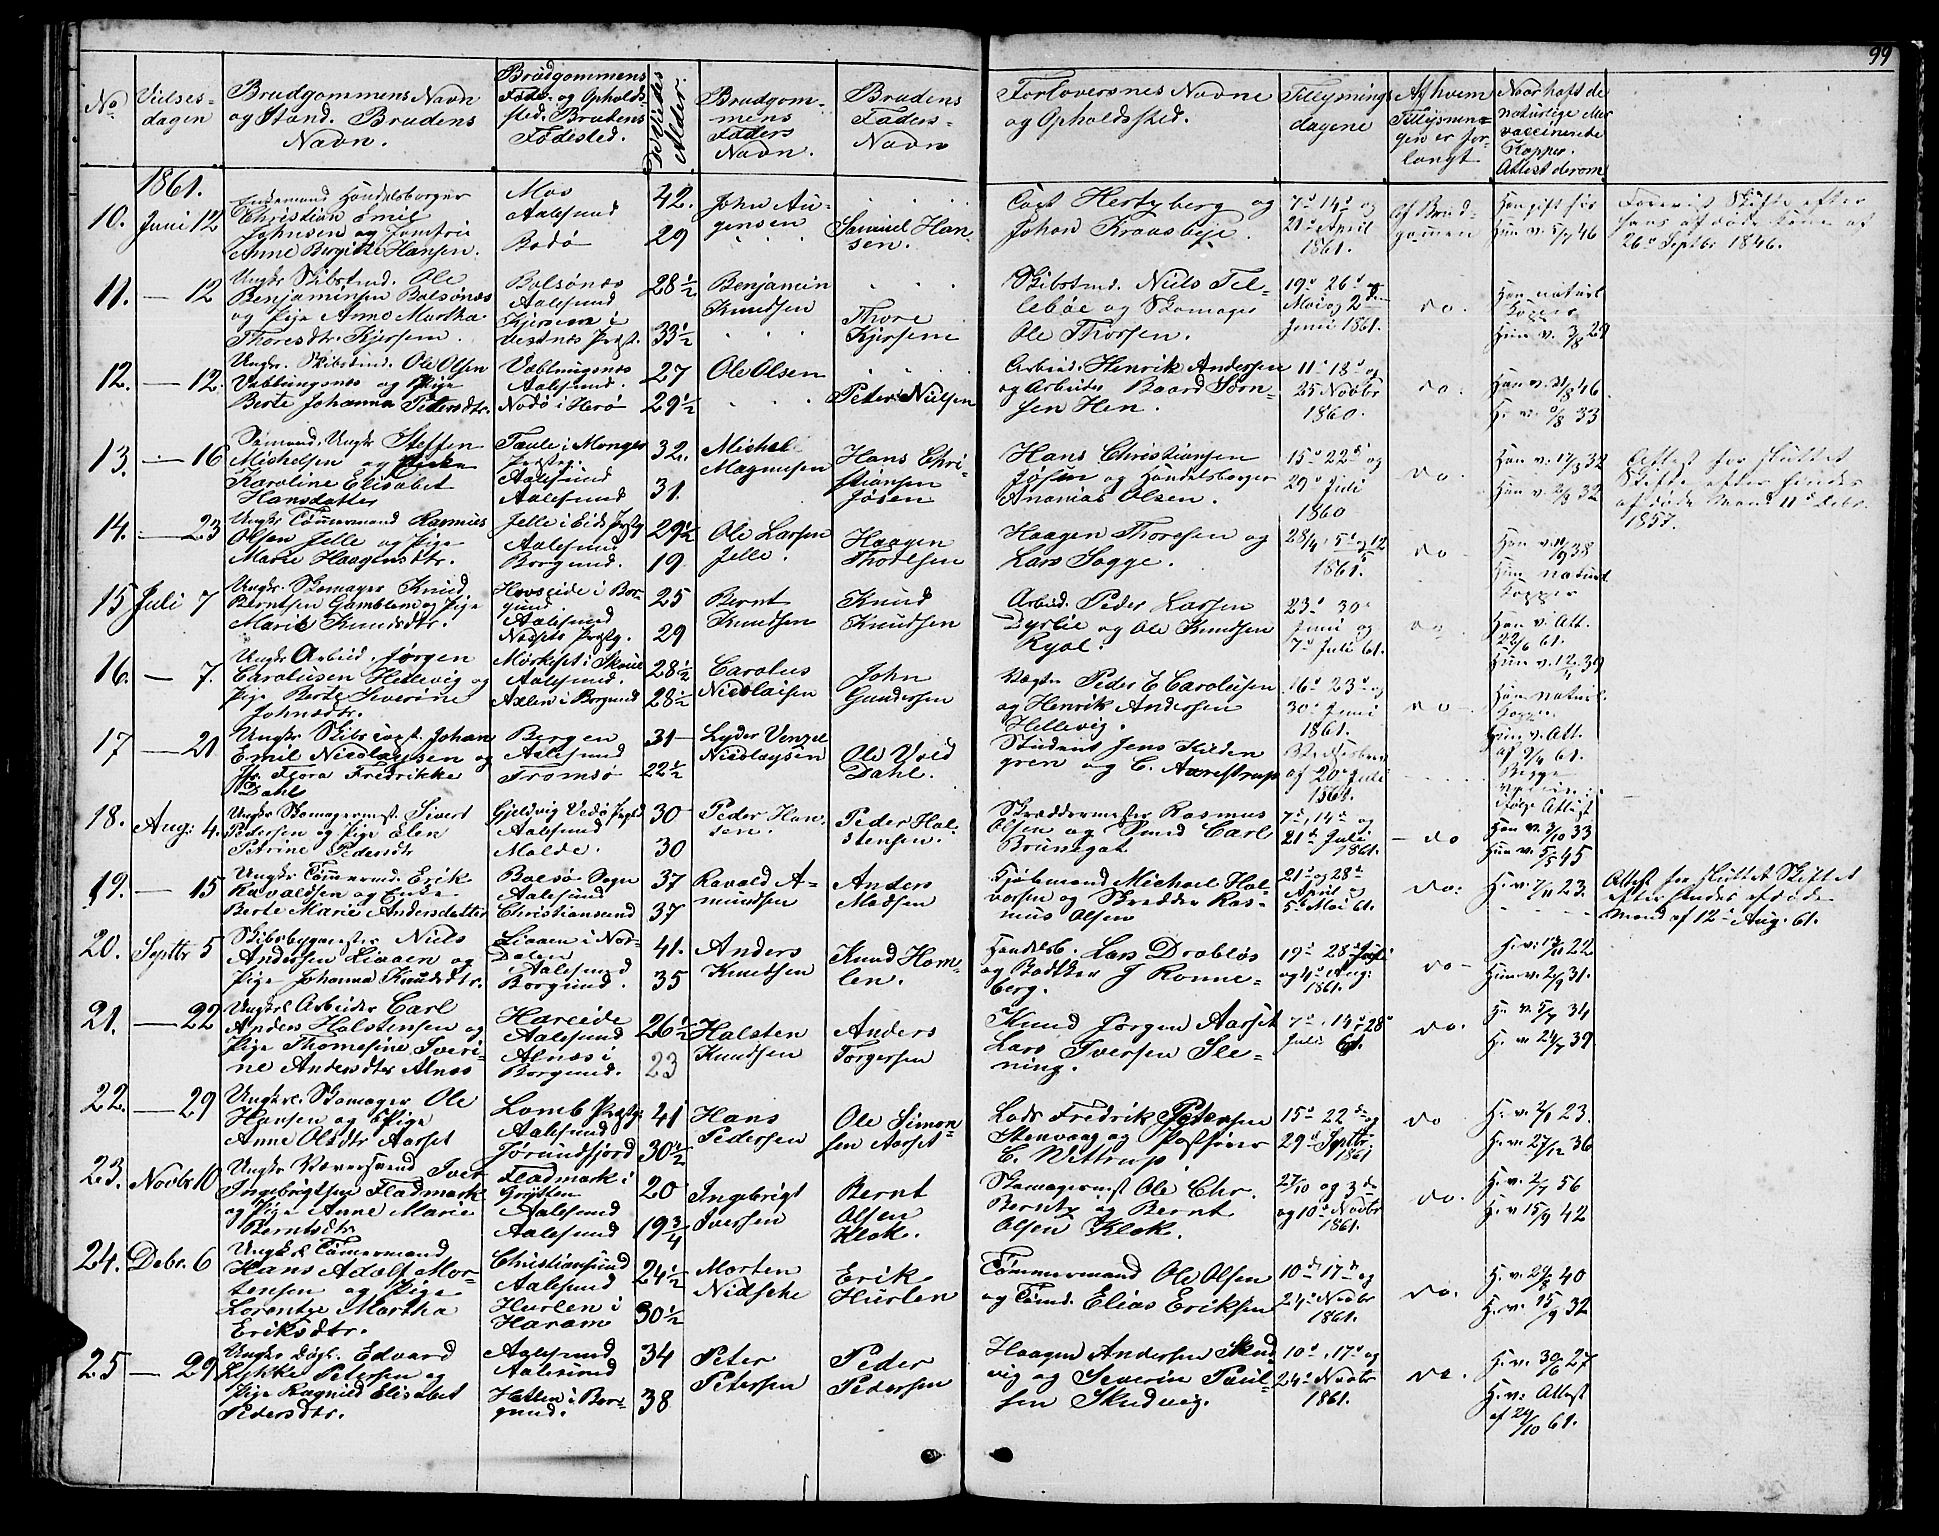 99
No
Vielses-
dagen
Brudgommens Navn
og Stand. Brudens
Navn.
Brudgommens
Føde- og Opholds-
sted. Brudens
Fødested.
Alder.
Brudgom-
mens
Faders
Navn.
Brudens
Faders
Navn
Forlovernes Navne
og Opholdssted.
Tillysnings
dagene
Af hvem
Tillysnin-
gen er for-
langt
naturlige eller
vaccinerede
Kopper.
Attest derom
1861.
10. Juni 12
Enkemand Handelsborger
Christian Emil
Johnsen og Jomfrue
Anne Birgitte Hansen.
Aalesund
Bodø
42.
29
John Au-
gensen
Samuel Han-
sen.
Capt Hertzberg og
Johan Kraasbye.
7de 14de og
21de April
1861.
Af Brud-
gommen
Han gift før
Hun v. 5/7 46
Foreviist Skifte efter
hans afdøde Kone af
26de Septbr 1846.
11. — 12
Ungkr Skibstmd. Ole
Benjaminsen Bolsønæs
og Pige Anne Martha
Thoresdtr. Kjersem.
Bolsønæs
Aalesund
Kjersem i
Vestnæs Prgt.
28 1/2
33 1/2
Benjamin
Knudsen
Thore
Kjersem
Skibstmd. Niels Til-
lebøe og Skomager
Ole Thorsen.
19de 26de og
Mai og 2den
Juni 1861.
do.
Han naturl
Kopper
Hun v. 3/8 29
12. — 12.
Ungkr. Skibstmd. Ole Olsen
Veblungsnæs og Pige
Berte Johanna Petersdtr.
Veblungsnæs
Aalesund.
Nodø i Herø
27
29 1/2
Ole Olsen
Peter Nielsen
Arbeid. Henrik Andersen
og Arbeider Baard Sørn-
sen Hen.
11te 18de og
25 Novbr
1860.
do.
13. — 16
Sømand. Ungkr Steffen
Michelsen og Enke
Karoline Elisabet
Hansdatter
Aalesund
Aalesund
32.
31.
Michel
Magnusen
Hans Chri-
stiansen
Jøsen
Hans Christiansen
Jøsen og Handelsborger
Ananias Olsen.
15de 22de og
29de Juli
1860
do.
Han v. 17/8 32
Attest for sluttet
Skifte efter hendes
afdøde Mand 11te Debr.
1857.
14. — 23
Ungkr Tømmermand Rasmus
Olsen Jelle og Pige
Marie Haagensdtr.
Jelle i Eids Prstg
Aalesund
Borgund.
29 1/2
19
Ole Larsen
Jelle.
Haagen
Thoresen
Haagen Thoresen og
Lars Sogge.
28/4, 5te og 12/5
1861.
do
Hun naturl
Kopper
15 Juli 7
Ungkr. Skomager Knud
Berntsen Gamblem og Pige
Marie Knudsdtr.
Hovseide i Bor-
gund
Aalesund
25
29
Bernt
Knudsen
Knud
Knudsen
Arbeid. Peder Larsen
Dyrlie og Ole Knudsen
Ryol.
23de 30te
Juni og
7de Juli 61.
do.
Han v. Att.
22/6 61.
16. — 7.
Ungkr Arbeid. Jørgen
Carolusen Hellevig og
Pige Berte Severine
Johnsdtr.
Aalesund.
Axlen i Borgund
28 1/2
28 1/2
Carolus
Nicolaisen
John
Gundersen
Peder E Carolusen
og Henrik Andersen
Hellevig.
16de 23de og
30te Juni
1861.
do
Han naturl
Kopper.
Hun v. Att.
17 — 21
Ungkr Skibscapt. Johan
Emil Nicolaysen og
Jfr. Flora Fredrikke
Dahl
Bergen
Aalesund
Tromsø
31
22 1/2
Lyder Venzel
Nicolaysen
Ole Vold
Dahl.
Student Jens Kilden
gren og C. Aarestrup
af 20de Juli
1861.
Begge
18. Aug: 4.
Ungkr Skomagermst. Sivert
Pedersen og Pige Elen
Petrine Pedersdtr
Aalesund
Molde.
30
30
Peder Han-
sen.
Peder Hal-
stensen.
Skræddermester Rasmus
Olsen og Smed Carl
Brunegat
7de, 14de og
21de Juli
1861.
do
ifølge Attest
Han v. 2/10 33
Hun v. 5/8 45
19. — 15
Ungkr Tømmermd. Erik
Ravaldsen og Enke
Berte Marie Andersdatter
Bolsø Sogn
Aalesund
Christiansund
37
37
Ravald A-
mundsen
Anders
Madsen
Michael Hal-
vorsen og Skrædder Ras-
mus Olsen
21de og 28de
April og
5te Mai 61.
do:
H. v. 7/11 23.
Attest for sluttet Skifte
efter hendes afdøde
Mand af 12te Aug. 61.
20. Septbr 5
Skibsbygmester Niels
Andersen Liaaen og
Pige Johanna Knudsdtr.
Liaaen i Nor-
dalen
Aalesund
Borgund.
41.
35
Anders
Knudsen
Knud Ham-
len.
Handelsb. Lars Drabløs
og Bødtker J Ronne-
berg.
19de 28de Juli
og 4de Aug:
1861.
do
Hun v. 2/9 31.
21. — 22
Ungkrl Arbeider Carl
Anders Halstensen og
Pige Thomesine Iveri-
ne Andersdtr Alnæs
Hareide
Aalesund
Alnæs i
Borgund.
26 1/2
23
Halsten
Knudsen
Anders
Torgersen
Knud Jørgen Aarset
Lars Iversen Sle-
ning.
7de, 14de 28de
Juli 61.
do.
H. v. 5/7 34
H. v. 24/7 39
22. — 29
Ungkrl. Skomager Ole
Hansen og Pige
Anne Olsdtr Aarset
Lomb Prstg:
Aalesund
Jørundfjord
41
30 1/2
Hans
Pedersen
Ole Simon-
sen Aarset
Lods Fredrik Petersen
Stenvaag og Postfører
C. Wittrup
15de 22de og
29de Septbr
1861
do
H. v. 2/1 23.
H. v. 27/12 36
23. Novbr 10
Ungkr Væversvend Iver
Ingebrigtsen Fladmark
og Pige Anne Marie
Berntsdtr
Fladmark i
Grytten
Aalesund
Aalesund
20
19 3/4
Ingebrigt
Iversen
Bernt
Olsen
Klok.
Skomagermst Ole Chr.
Berntz og Bernt
Olsen Klok.
27/10 og 3die
og 10de Novbr
1861.
do.
H. v. 2/7 56
H. v 15/9 42
24. Debr. 6
Ungkrl Tømermand
Hans Adolf Mor-
tensen og Pige
Lorentze Martha
Eriksdtr.
Christiansund
Aalesund
Hurlen i
Haram
24 1/2
30 1/2
Morten
Nidsche
Erik
Hurlen
Tømmermand Ole Olsen
og Tømd. Elias Eriksen
10de 17de og
24de Novbr
1861.
do.
H. v. 15/9 32
25 — 29
Ungkr Dagl. Edvard
Lykke Petersen og
Pige Ragnild Elisabet
Pedersdtr.
Aalesund
Aalesund
Hatlen i Bor-
gund.
34
38
Peter
Petersen
Peder
Pedersen
Haagen Andersen Skud
vig og Severin Paul-
sen Skudvig.
10de, 17de og
24de Novbr
1861.
do.
H. v. 30/6 27
H. v: Attest
af 24/10 61.